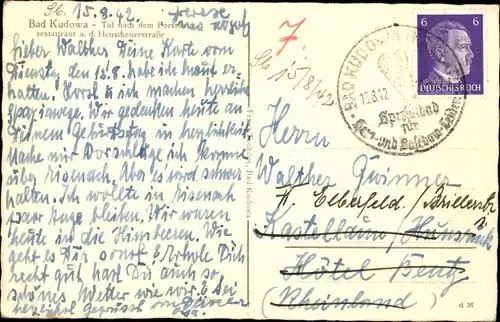 St. 15.8.42
Bad Kudowa - Tal nach dem Forst-
restaurant a. d. Heuscheuerstraße
Lieber Walther! Deine Karte vom
Dienstag den 12.8. habe ich heut er-
halten. Horst & ich machen herrliche
Spaziewege. Wir gedenken heute an
Deinem Geburtstag in herzlichkeit.
Mache mir Vorschläge ich komme
über Eisenach. Aber es wird schwer
halten. Ich wollte in Eisenach
paar Tage bleiben. Wir waren
heute in die Himbeeren. Wie
geht es Dir sonst? Erhole Dich
recht gut hast Du auch so
schönes Wetter wie wir? Sei
herzlich gegrüsst
7
St. 15/8/42
BAD KUDOWA
15.8.42
Spezialbad
für
Herz- und Basedow-Leiden
6 6
DEUTSCHES REICH
Herrn
Walther Gwinner
Elberfeld/Brillerstr.
Kastellaun/Huns
Hôtel Bentz
(Rheinland)
d M